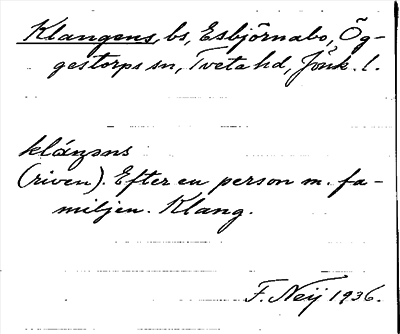 Klangens, bs, Esbjörnabo, Ög-
gestorps sn, Tveta hd, Jönk. l.
kláŋəns
(riven). Efter en person m. fa-
miljen. Klang.
F. Neij 1936.